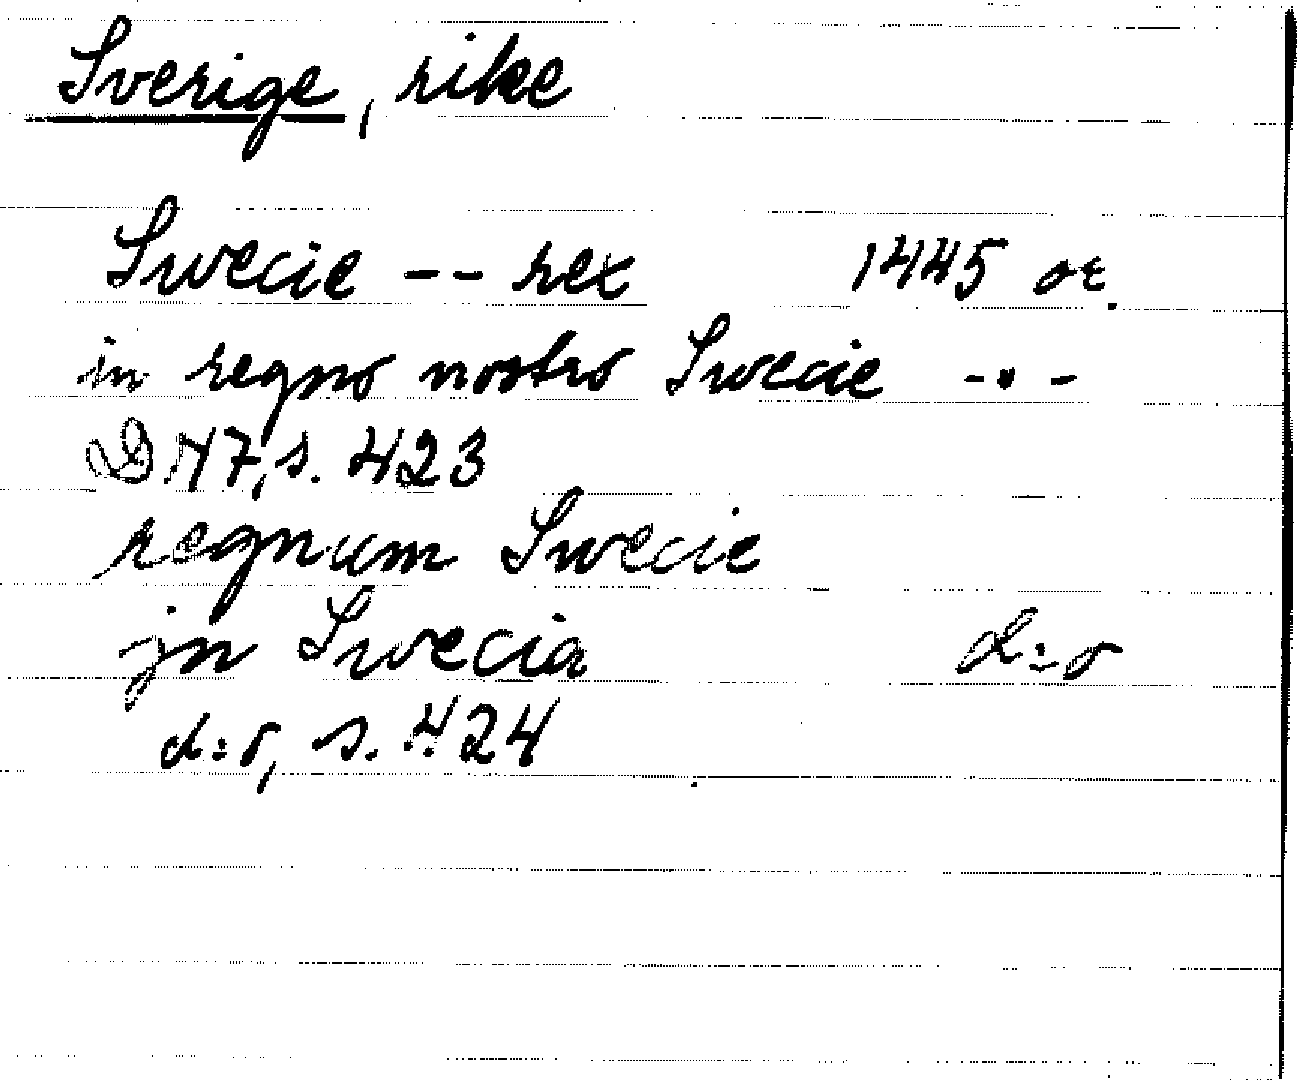 Sverige, rike
Swecie -- rex 1445 or.
in regno nostro Swecie ---
DN 7, s. 423
regnum Swecie
jn Swecia d:o
d:o, s. 424